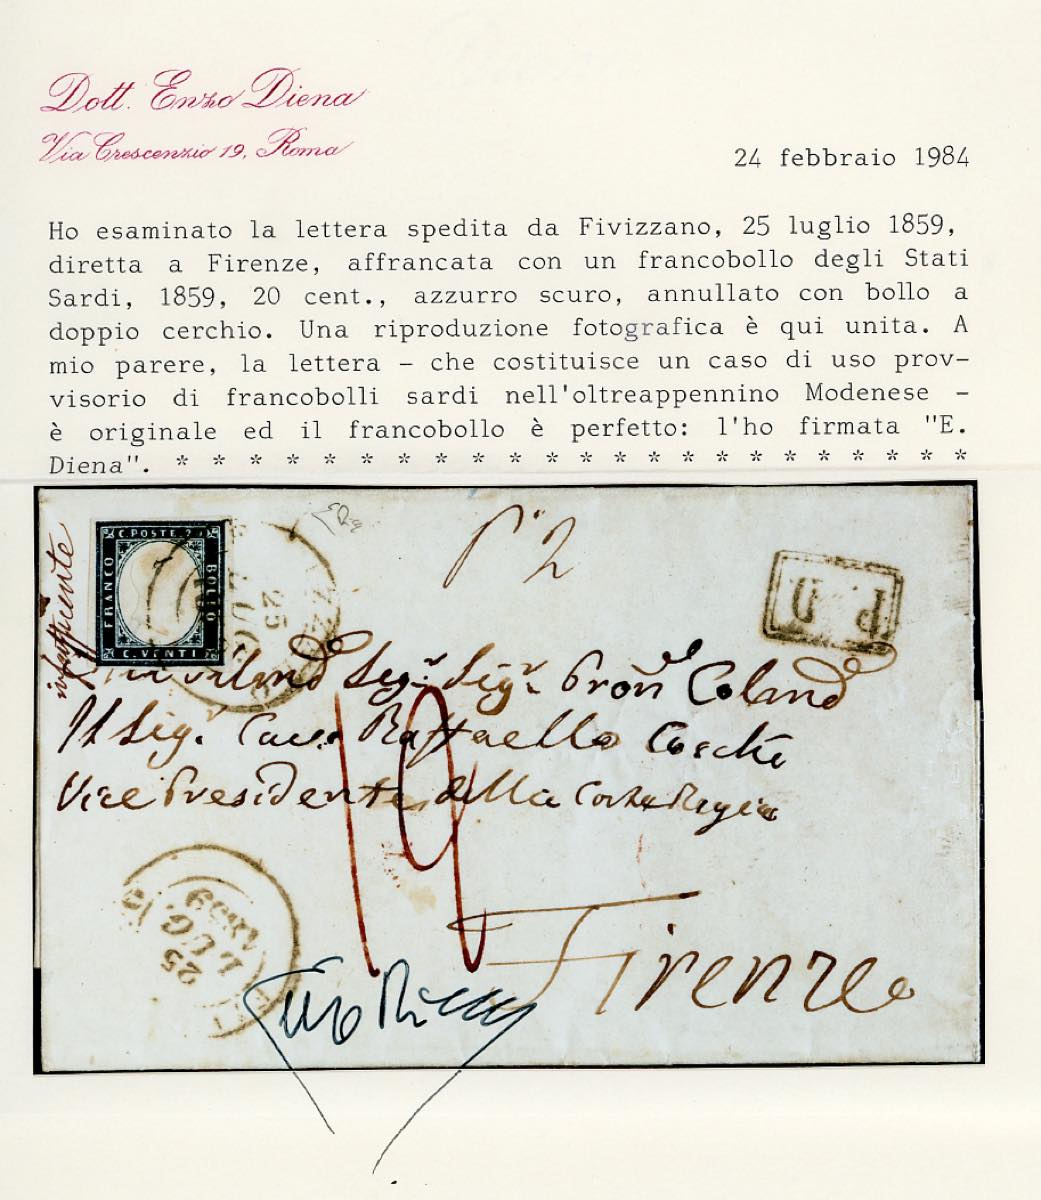 Dott. Enzo Diena
Via Crescenzio 19, Roma
24 febbraio 1984
Ho esaminato la lettera spedita da Fivizzano, 25 luglio 1859,
diretta a Firenze, affrancata con un francobollo degli Stati
Sardi, 1859, 20 cent., azzurro scuro, annullato con bollo a
doppio cerchio. Una riproduzione fotografica è qui unita. A
mio parere, la lettera – che costituisce un caso di uso prov–
visorio di francobolli sardi nell'oltreappennino Modenese –
è originale ed il francobollo è perfetto: l'ho firmata "E.
Diena". * * * * * * * * * * * * * * * * * * * * * *
insufficiente
C. POSTE. 20
FRANCO
BOLLO
C. VENTI
25
LUG
P. D.
Sigr. Sigr. Pron Colend
Il Sigr. Cave Raffaello
Vice Presidente della Corte Regia
19
25
LUG.
1859
Firenze